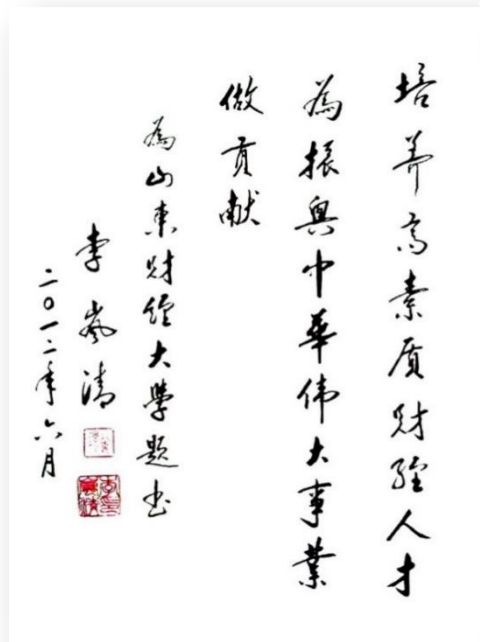 培养高素质财经人才
為振興中華伟大事業
做贡献
為山東财经大學题书
李岚清
二〇一二年六月